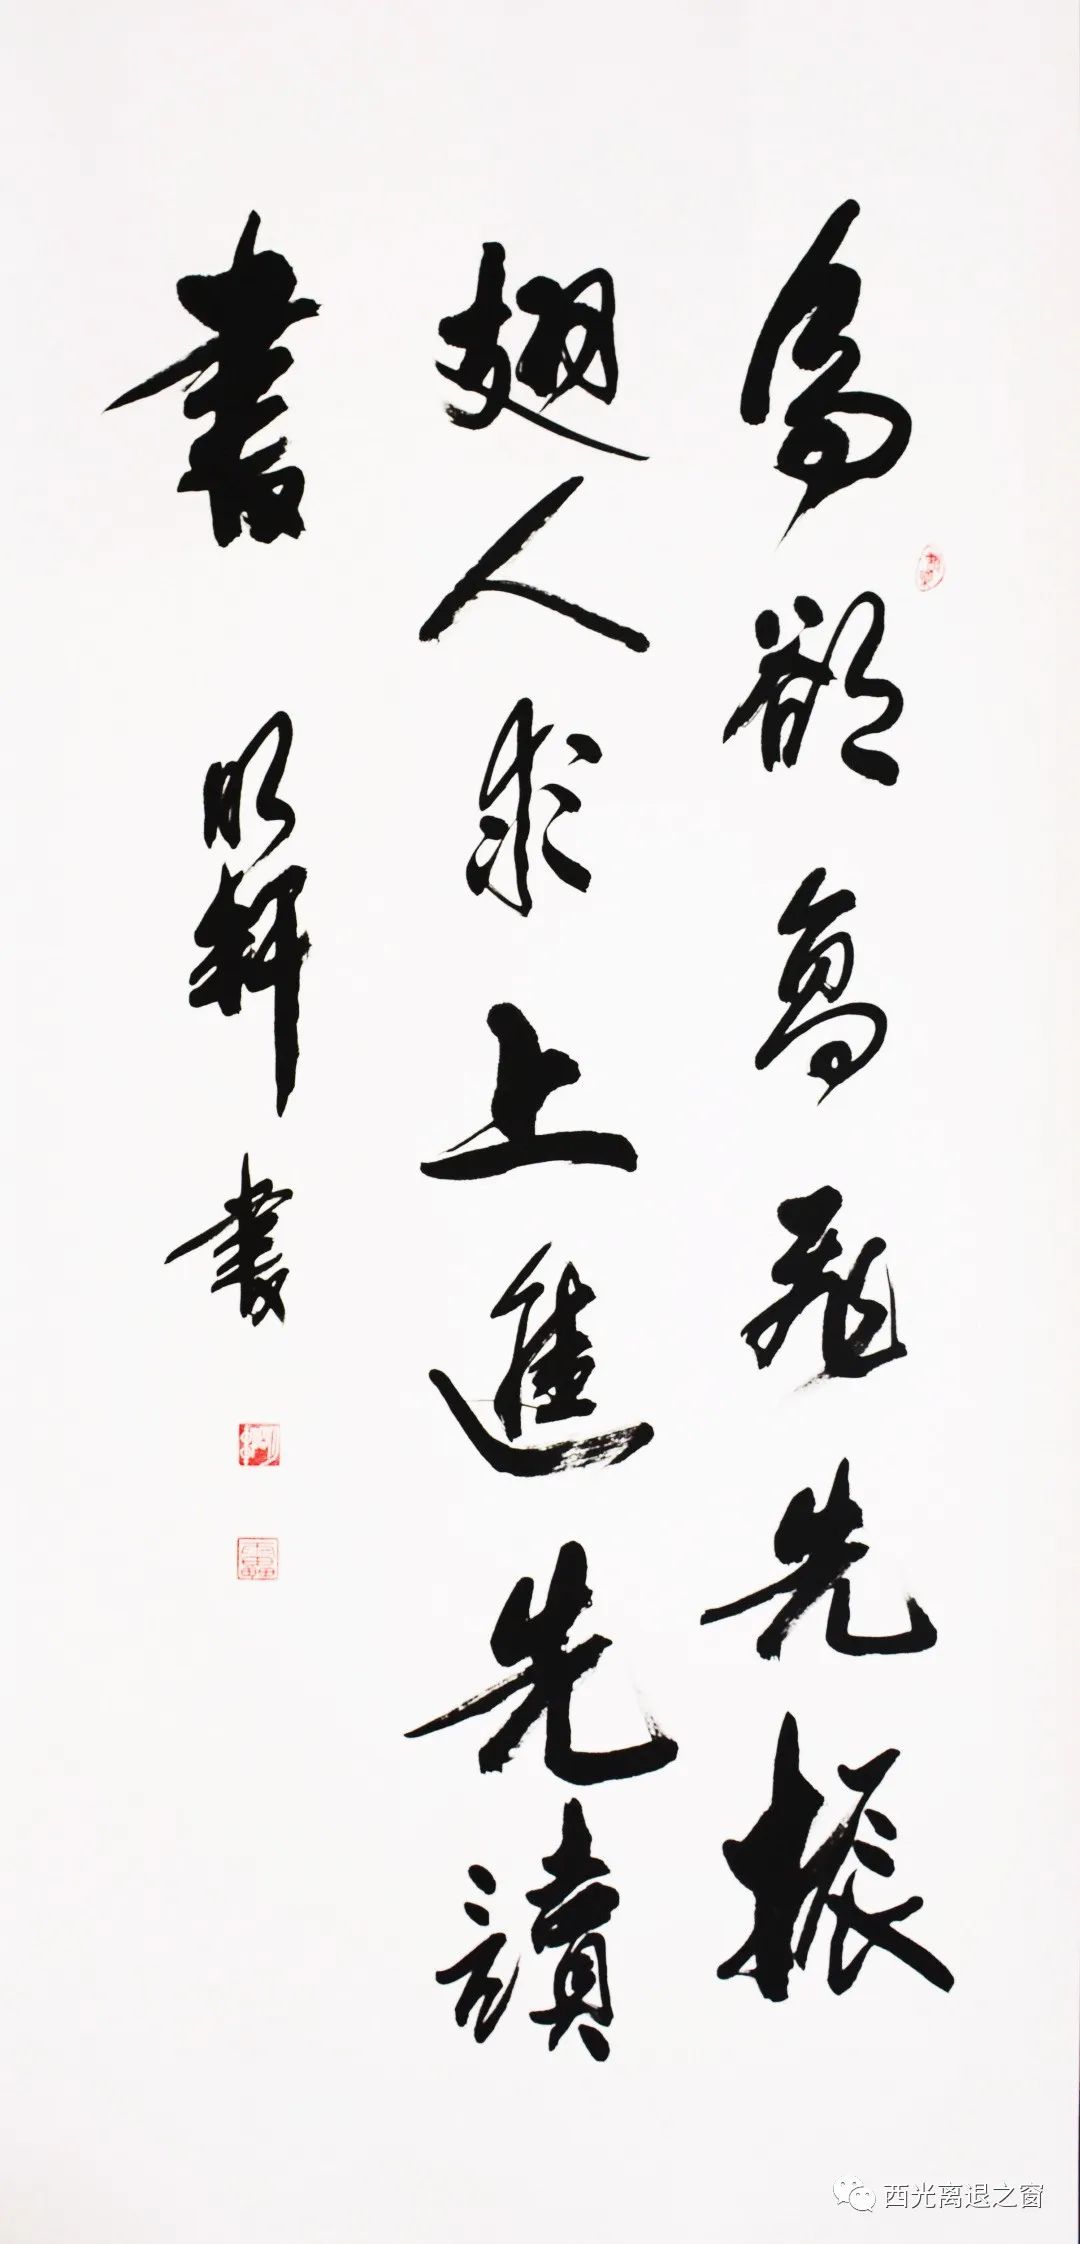 鳥欲高飛先振
翅人求上進先讀
書
明輝書
西光离退之窗